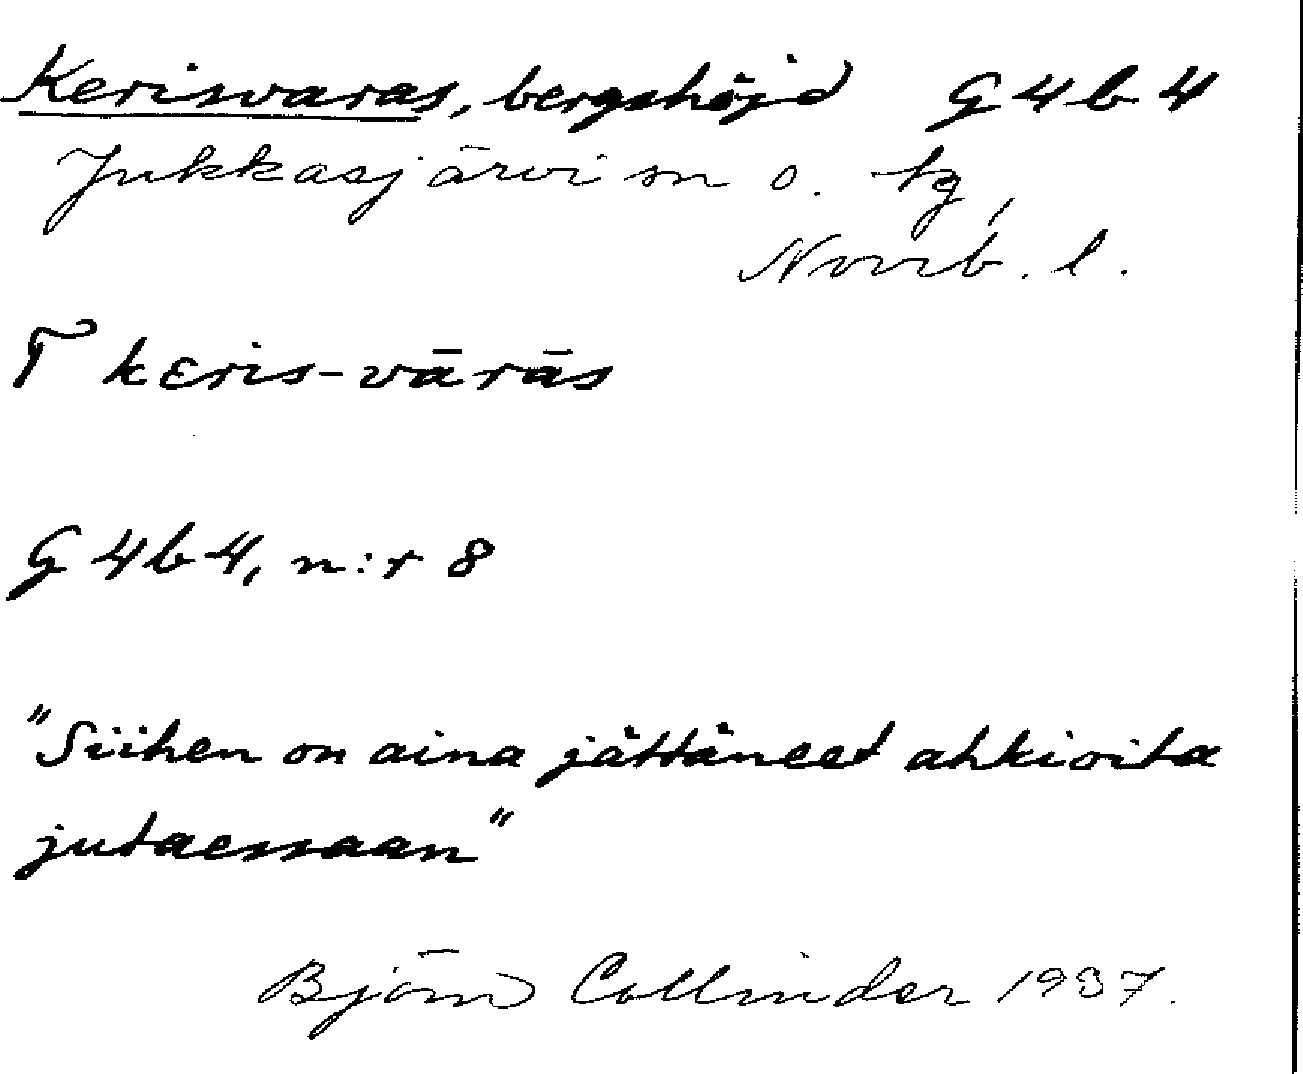 Kerisvaras, bergshöjd G4b4
Jukkasjärvi sn o. tg,
Norrb. l.
T kɛris-vārās
G4b4, n:r 8
"Siihen on aina jättäneet ahkioita
jutaessaan"
Björn Collinder 1937.